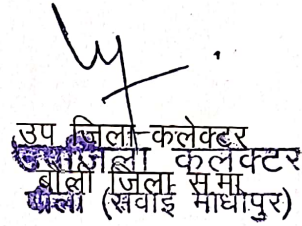 उप जिला कलेक्टर
उपजिला कलक्टर
बौंली जिला स.मा.
बौंली (सवाई माधोपुर)